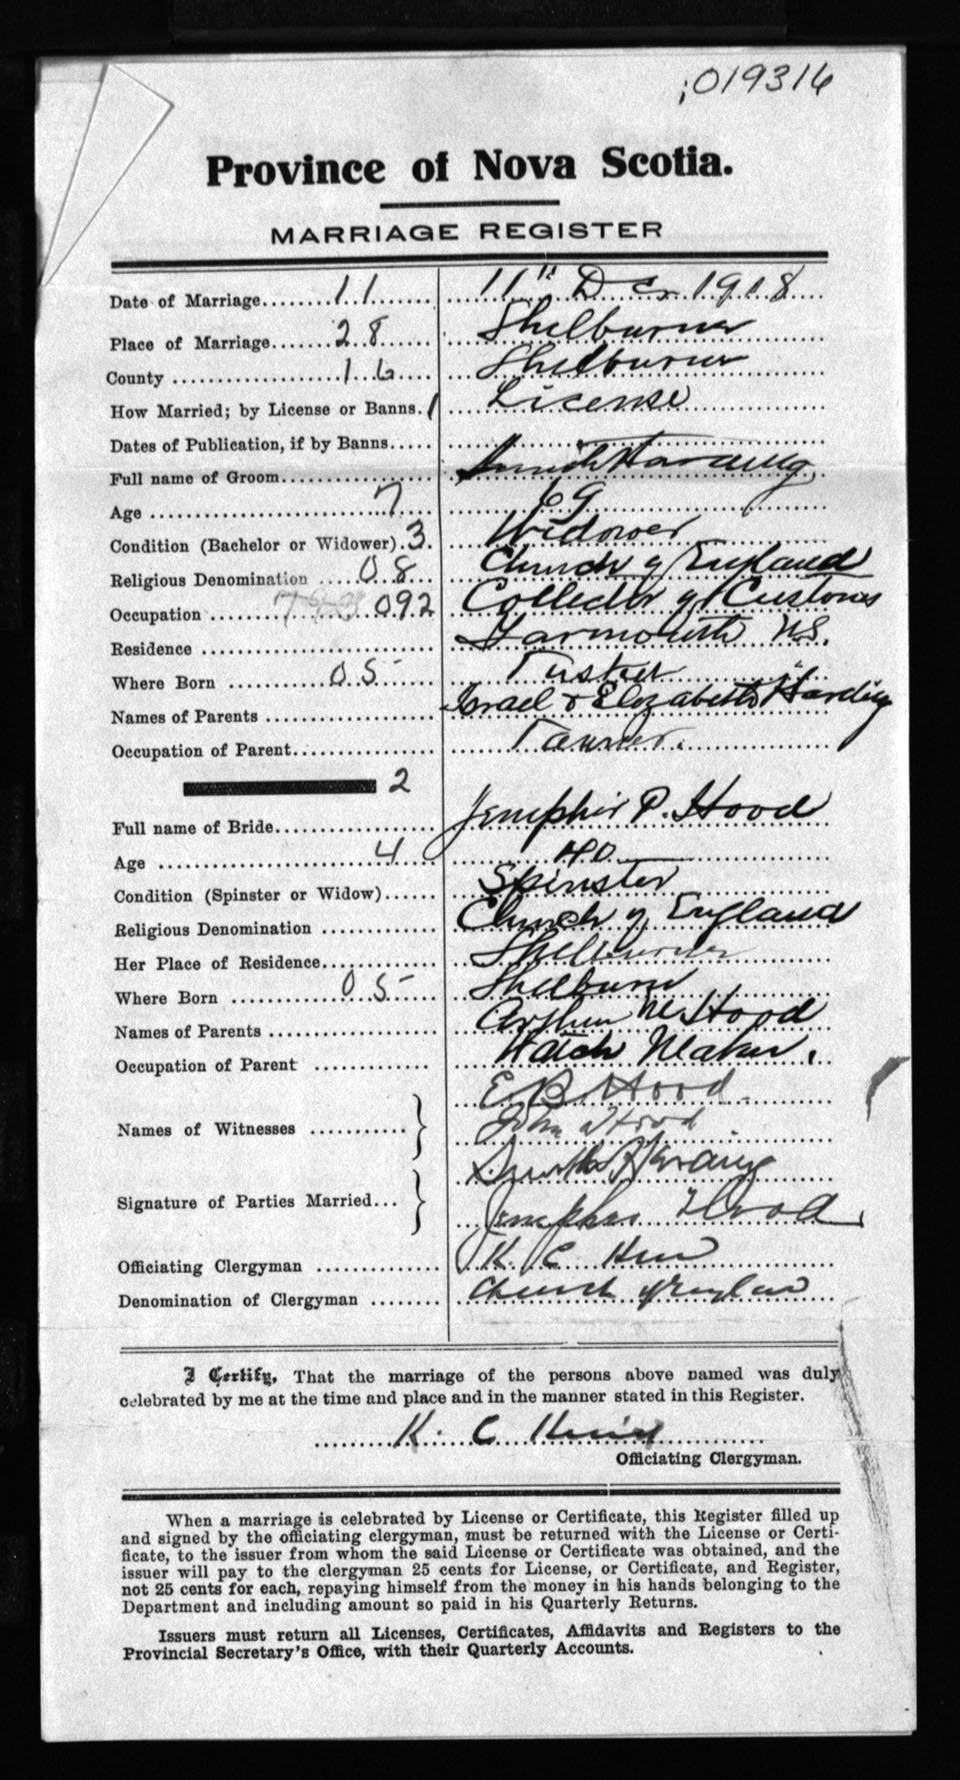 019316
Province of Nova Scotia.
MARRIAGE REGISTER
Date of Marriage 11 11" Dec 1918
Place of Marriage 28 Shelburne
County 16 Shelburne
How Married; by License or Banns. 1 License
Dates of Publication, if by Banns
Full name of Groom Smith Harding
Age 7 69
Condition (Bachelor or Widower) 3. Widower
Religious Denomination 08 Church of England
Occupation 092 Collector of Customs
Residence Yarmouth N.S.
Where Born 05 Tusket
Names of Parents Israel & Elizabeth Harding
Occupation of Parent Tanner.
2
Full name of Bride P. Hood
Age 4 40
Condition (Spinster or Widow) Spinster
Religious Denomination Church of England
Her Place of Residence Shelburne
Where Born 05 Shelburne
Names of Parents Arthur W Hood
Occupation of Parent Watch Maker.
E B Hood
Names of Witnesses John Hood
Smith Harding
Signature of Parties Married Hood
Officiating Clergyman K. C. Hind
Denomination of Clergyman Church of England
I Certify, That the marriage of the persons above named was duly
celebrated by me at the time and place and in the manner stated in this Register.
K. C Hind
Officiating Clergyman.
When a marriage is celebrated by License or Certificate, this Register filled up
and signed by the officiating clergyman, must be returned with the License or Certi-
ficate, to the issuer from whom the said License or Certificate was obtained, and the
issuer will pay to the clergyman 25 cents for License, or Certificate, and Register,
not 25 cents for each, repaying himself from the money in his hands belonging to the
Department and including amount so paid in his Quarterly Returns.
Issuers must return all Licenses, Certificates, Affidavits and Registers to the
Provincial Secretary's Office, with their Quarterly Accounts.